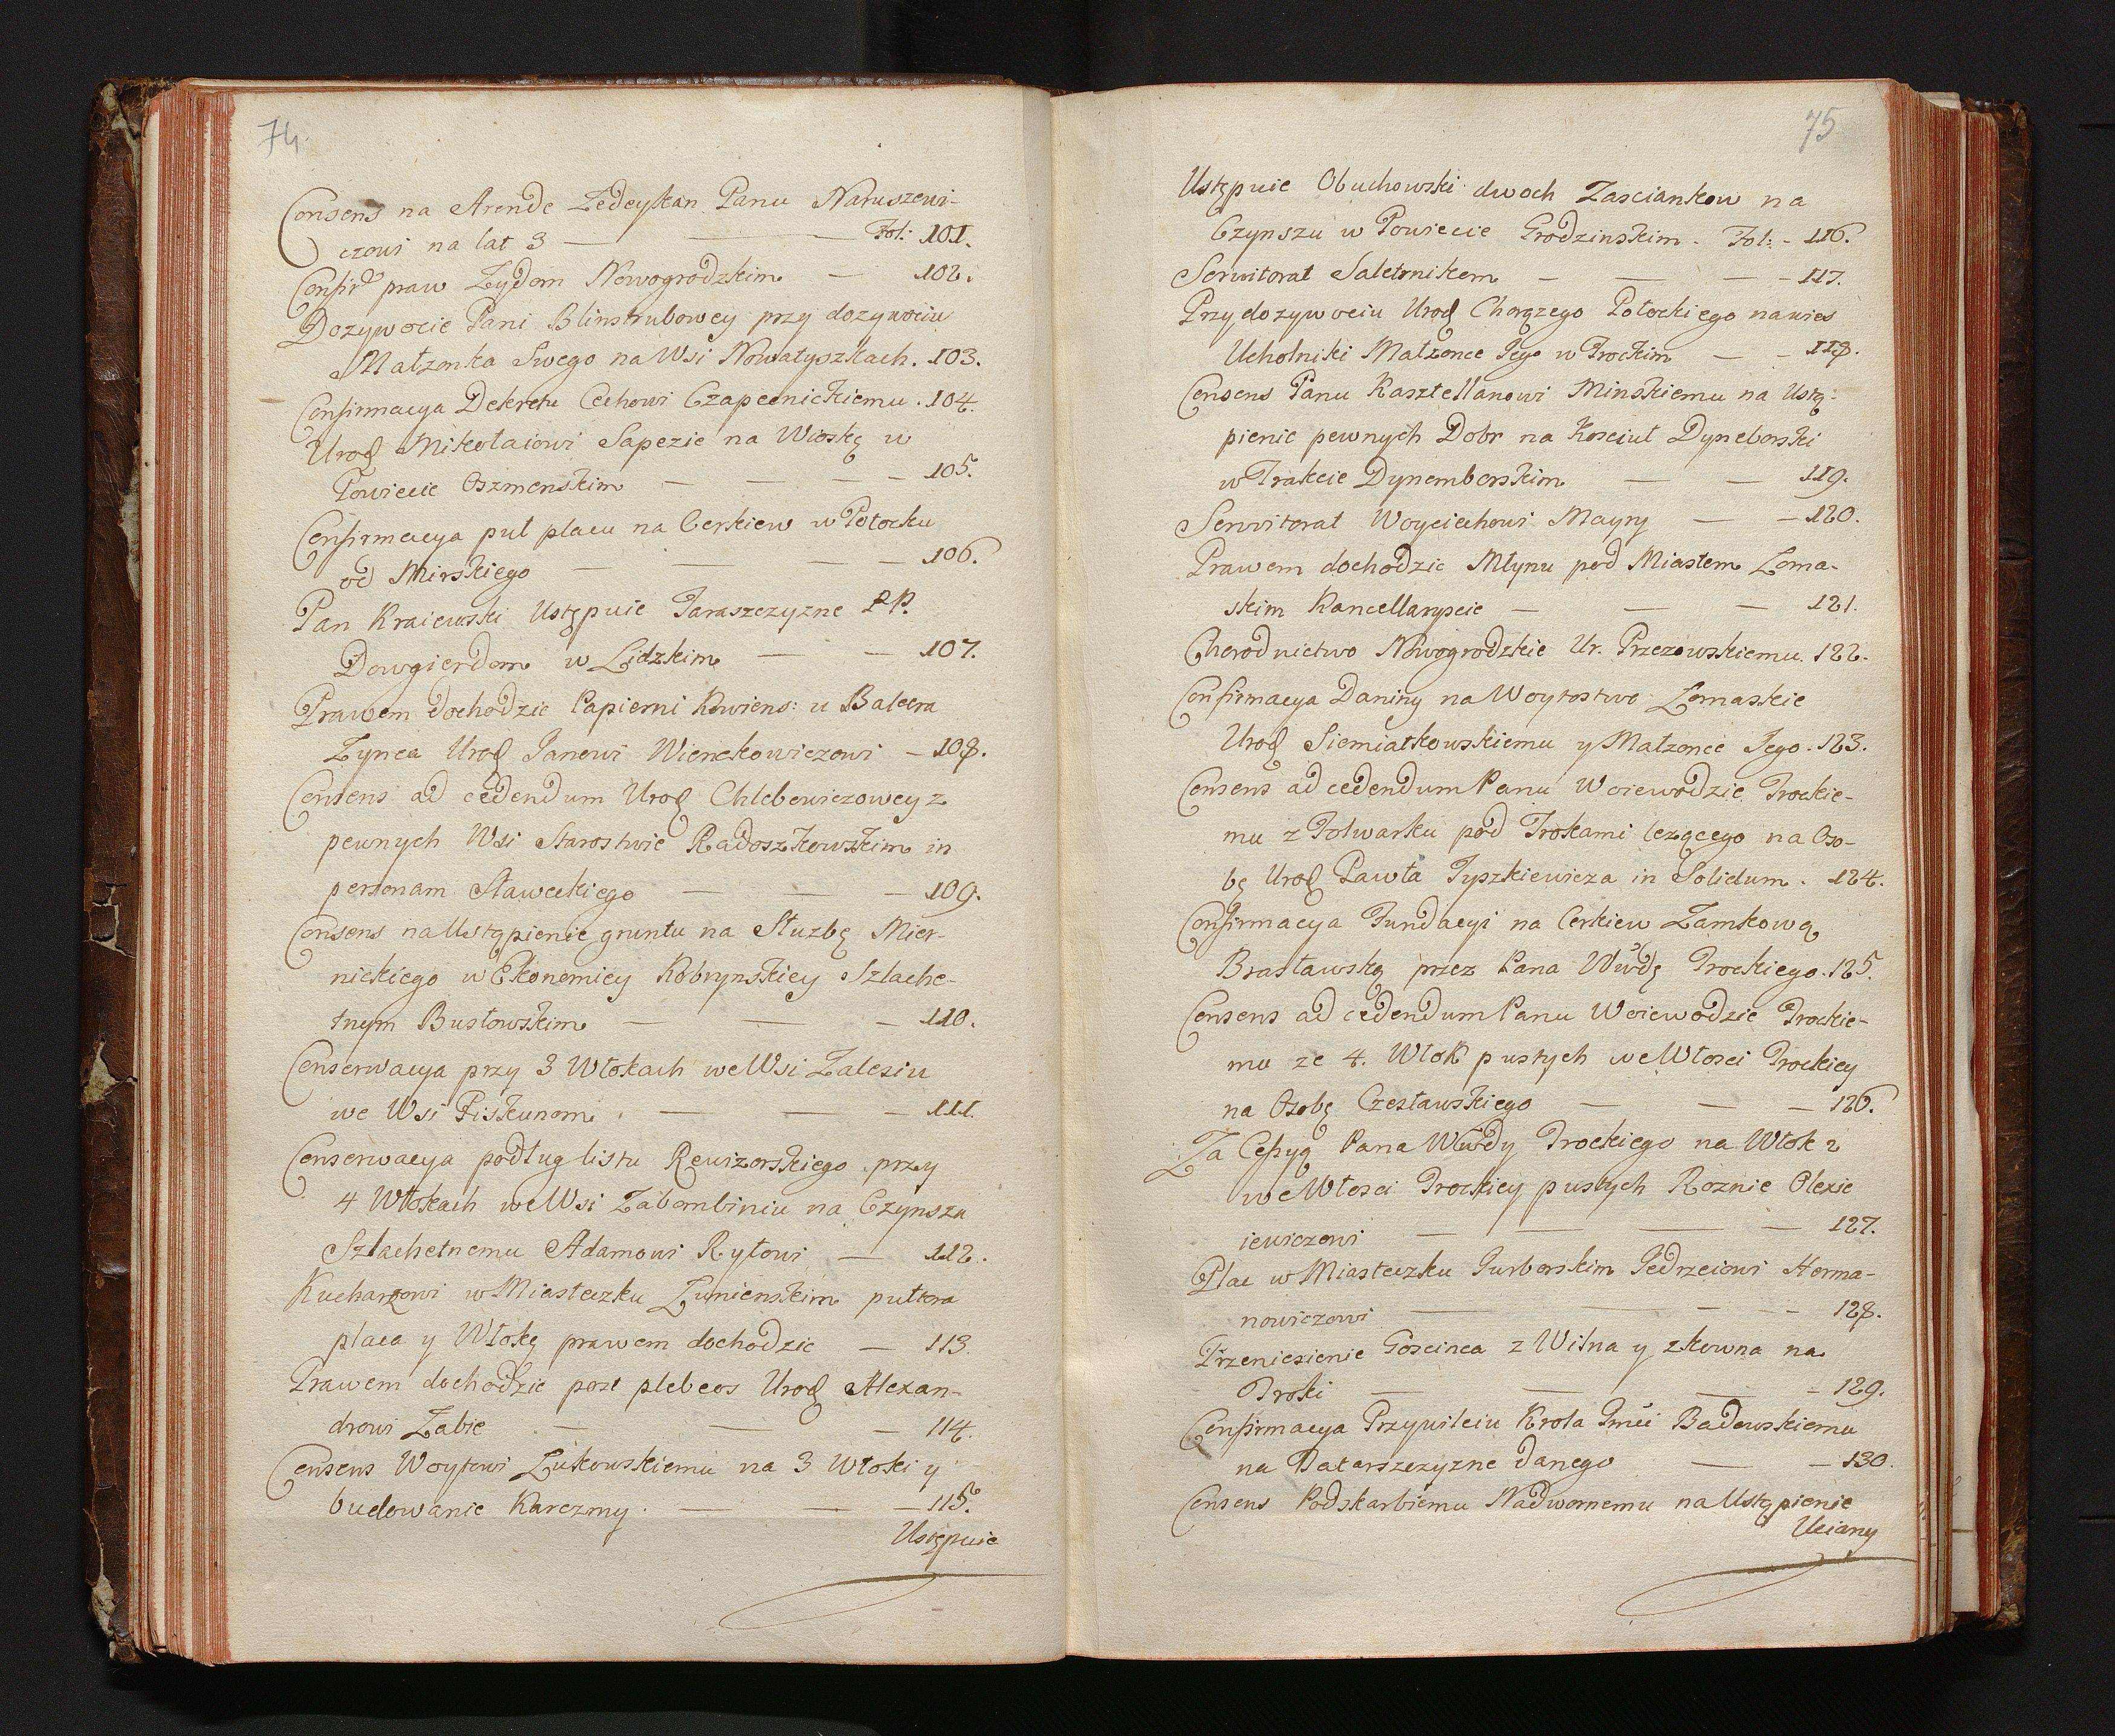 74.
Consens na Arendę Zedeykan Panu Naruszewi-
czowi na lat 3 — — Fol: 101.
Confir. praw Zydom Nowogrodzkim — 102.
Dozywocie Pani Blinstrubowey przy dozywociu
Małzonka Swego na Wsi Nowatyszkach. 103.
Confirmacya Dekretu Cechowi Czapecnickiemu. 104.
Urod Mikołaiowi Sapezie na Wioskę w
Powiecie Oszmenskim — — — — 105.
Confirmacya puł placu na Cerkiew w Połocku
od Mirskiego — — — — 106.
Pan Kraiewski Ustępuie Taraszczyzne PP.
Dowgierdom w Lidzkim — — 107.
Prawem dochodzic Papierni Kowiens: u Balcera
Zynca Urod Janowi Wienckowiczowi — 108.
Consens ad cedendum Urod Chlebowiczowey z
pewnych Wsi Starostwie Radoszkowskim in
personam Sławeckiego — — — 109.
Consens na Ustąpienie gruntu na Słuzbę Mier-
nickiego w Ekonomiey Kobrynskiey Szlache-
tnym Busłowskim — — — 110.
Conserwacya przy 3 Włokach we Wsi Zalesiu
we Wsi Piskunom. — — — 111.
Conserwacya podług listu Rewizorskiego przy
4 Włokach we Wsi Zabombiniu na Czynszu
Szlachetnemu Adamowi Ryłowi — 112.
Kucharzowi w Miasteczku Zunienskim pułtora
placa y Włokę prawem dochodzic — 113.
Prawem dochodzic post plebeos Urod Alexan-
drowi Zabie — — — 114.
Consens Woytowi Zukowskiemu na 3 Włoki y
budowanie Karczmy. — — — 115.
Ustępuie
75
Ustępuie Obuchowski dwoch Zasciankow na
Czynszu w Powiecie Grodzinskim. Fol: - 116.
Serwitorat Saletrnikom — — — - 117.
Przy dozywociu Urod Chorązego Potockiego na wies
Ucholniki Małzonce Jego w Trockim — - 118.
Consens Panu Kasztellanowi Minskiemu na Ustą-
pienie pewnych Dobr na Kosciuł Dyneborski
w Trakcie Dynemborskim — — 119.
Serwitorat Woyciechowi Mayry — — 120.
Prawem dochodzic Młynu pod Miastem Loma-
skim Kancellaryscie — — — 121.
Chorodnictwo Nowogrodzkie Ur. Przezowskiemu. 122.
Confirmacya Daniny na Woytostwo Lomaskie
Urod Siemiatkowskiemu y Małzonce Jego. 123.
Consens ad cedendum Panu Woiewodzie Trockie-
mu z Folwarku pod Trokami lezącego na Oso-
bę Urod Pawła Tyszkiewicza in Solidum. 124.
Confirmacya Fundacyi na Cerkiew Zamkową
Brasławską przez Pana Wwdę Trockiego. 125.
Consens ad cedendum Panu Woiewodzie Trockie-
mu ze 4. Włok pustych we Włosci Trockiey
na Osobę Czesławskiego — — — 126.
Za Cessyą Pana Wwdy Trockiego na Włok 2
we Włosci Trockiey pustych Roznie Olexie
iewiczowi — — — — 127.
Plac w Miasteczku Jurborskim Jędrzeiowi Herma-
nowiczowi — — - - 128.
Przeniesienie Goscinca z Wilna y z Kowna na
Troki — — — - 129.
Confirmacya Przywileiu Krola Jmci Badowskiemu
na Tatarszczyzne danego — — 130.
Consens Podskarbiemu Nadwornemu na Ustąpienie
Uciany